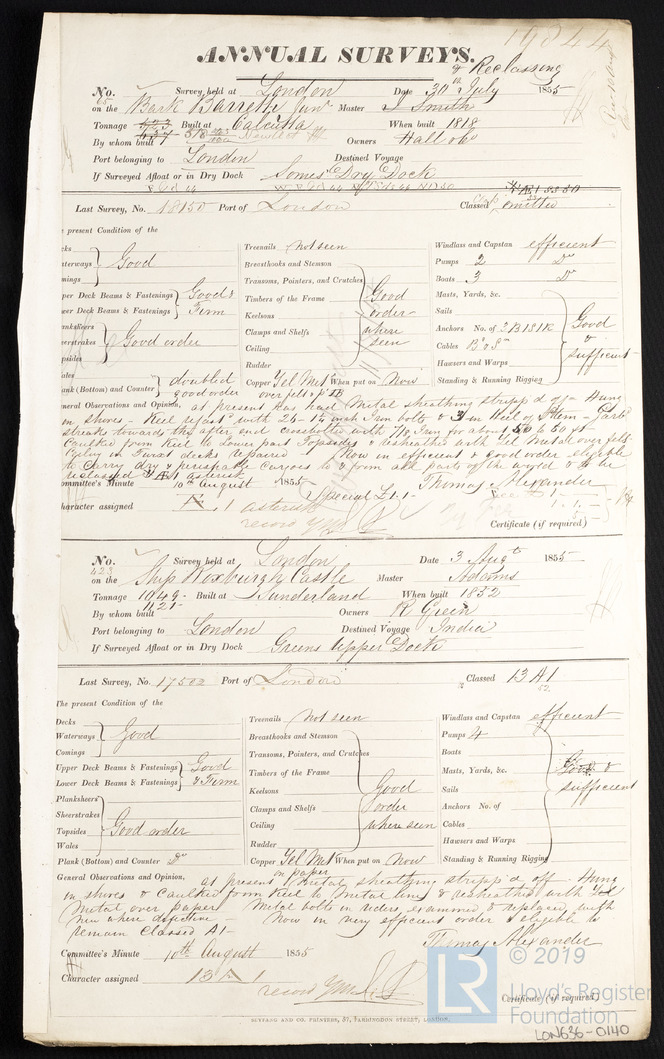 19844
ANNUAL SURVEYS.
& Reclassing
No. 65 Survey held at London Date 30th July 1855
on the Bark Barretto Junr Master J Smith
Tonnage 423 Built at Calcutta When built 1818
437
By whom built Owners Hall & Co
Port belonging to London Destined Voyage
If Surveyed Afloat or in Dry Dock Somes Dry Dock
Last Survey, No. 18150 Port of London Classed, omitted
e present Condition of the
cks
aterways Good
mings
per Deck Beams & Fastenings Good &
wer Deck Beams & Fastenings Firm
anksheers
eerstrakes Good order
opsides
ales
ank (Bottom) and Counter doubled good order
Treenails not seen
Breasthooks and Stemson
Transoms, Pointers, and Crutches Good
Timbers of the Frame order
Keelsons where
Clamps and Shelfs seen
Ceiling
Rudder
Copper Yel Met When put on Now
over felt
Windlass and Capstan efficient
Pumps 2 Do
Boats 3 Do
Masts, Yards, &c.
Sails Good
Anchors No. of 2B 1S 1K &
Cables sufficient
Hawsers and Warps
Standing & Running Rigging
neral Observations and Opinion, at present has had Metal sheathing stripp'd off Hung
in shores - Keel refast'd with 24 inch iron bolts &
Caulked from Keel to Lower part Topsides & resheathed with Yel Metal over felt
Now in efficient & good order eligible
to Carry dry & perishable Cargoes to & from all parts of the world & to be
reclassed Æ 1 asterisk Thomas Alexander
ommittee's Minute 10th August 1855
Special £1.1-
haracter assigned Æ 1 asterisk
record YM
Certificate (if required)
No. 423 Survey held at London Date 3 Augt 1855
on the Ship Roxburgh Castle Master Adams
Tonnage 1049 Built at Sunderland When built 1852
1121
By whom built Owners R Green
Port belonging to London Destined Voyage India
If Surveyed Afloat or in Dry Dock Greens Upper Dock
Last Survey, No. 17502 Port of London Classed 13 A 1
52
The present Condition of the
Decks
Waterways Good
Comings
Upper Deck Beams & Fastenings Good
Lower Deck Beams & Fastenings & Firm
Planksheers
Sheerstrakes
Topsides Good order
Wales
Plank (Bottom) and Counter Do
Treenails not seen
Breasthooks and Stemson
Transoms, Pointers, and Crutches
Timbers of the Frame
Keelsons Good
Clamps and Shelfs order
Ceiling where seen
Rudder
Copper Yel Met When put on Now
on paper
Windlass and Capstan efficient
Pumps 4
Boats
Masts, Yards, &c. Good &
Sails sufficient
Anchors No. of
Cables
Hawsers and Warps
Standing & Running Rigging
General Observations and Opinion, at present Metal sheathing stripp'd off Hung
in shores & Caulked from Keel to Metal line & resheathed with Yel
Metal over paper Metal bolts in riders examined & replaced with
new where defective - Now in very efficient order & eligible to
remain Classed A1-
Thomas Alexander
Committee's Minute 10th August 1855
Character assigned 13 A 1
record YM
Certificate (if required)
SEYFANG AND CO. PRINTERS, 57, FARRINGDON STREET, LONDON.
© 2019
LR Lloyd's Register
Foundation
LON636-0140